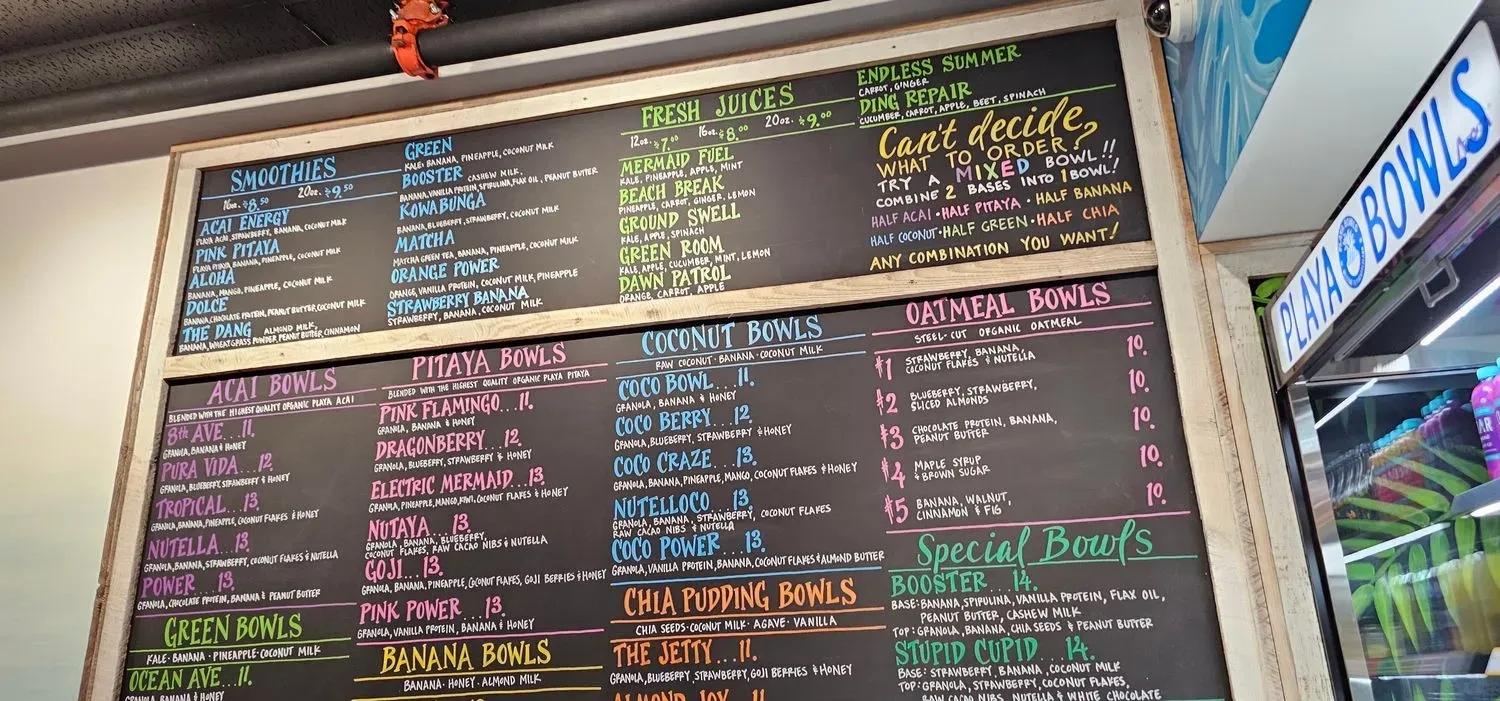 SMOOTHIES
16oz. $8.50 20oz. $9.50
ACAI ENERGY
PLAYA ACAI, STRAWBERRY, BANANA, COCONUT MILK
PINK PITAYA
PLAYA PITAYA, BANANA, PINEAPPLE, COCONUT MILK
ALOHA
BANANA, MANGO, PINEAPPLE, COCONUT MILK
DOLCE
BANANA, CHOCOLATE PROTEIN, PEANUT BUTTER, COCONUT MILK
THE DANG ALMOND MILK,
BANANA, WHEATGRASS POWDER, PEANUT BUTTER, CINNAMON
GREEN
KALE, BANANA, PINEAPPLE, COCONUT MILK
BOOSTER CASHEW MILK,
BANANA, VANILLA PROTEIN, SPIRULINA, FLAX OIL, PEANUT BUTTER
KOWABUNGA
BANANA, BLUEBERRY, STRAWBERRY, COCONUT MILK
MATCHA
MATCHA GREEN TEA, BANANA, PINEAPPLE, COCONUT MILK
ORANGE POWER
ORANGE, VANILLA PROTEIN, COCONUT MILK, PINEAPPLE
STRAWBERRY BANANA
STRAWBERRY, BANANA, COCONUT MILK
FRESH JUICES
12oz. $7.00 16oz. $8.00 20oz. $9.00
MERMAID FUEL
KALE, PINEAPPLE, APPLE, MINT
BEACH BREAK
PINEAPPLE, CARROT, GINGER, LEMON
GROUND SWELL
KALE, APPLE, SPINACH
GREEN ROOM
KALE, APPLE, CUCUMBER, MINT, LEMON
DAWN PATROL
ORANGE, CARROT, APPLE
ENDLESS SUMMER
CARROT, GINGER
DING REPAIR
CUCUMBER, CARROT, APPLE, BEET, SPINACH
Can't decide
WHAT TO ORDER?
TRY A MIXED BOWL!!
COMBINE 2 BASES INTO 1 BOWL!
HALF ACAI • HALF PITAYA • HALF BANANA
HALF COCONUT • HALF GREEN • HALF CHIA
ANY COMBINATION YOU WANT!
ACAI BOWLS
BLENDED WITH THE HIGHEST QUALITY ORGANIC PLAYA ACAI
8th AVE...11.
GRANOLA, BANANA & HONEY
PURA VIDA...12.
GRANOLA, BLUEBERRY, STRAWBERRY & HONEY
TROPICAL...13.
GRANOLA, BANANA, PINEAPPLE, COCONUT FLAKES & HONEY
NUTELLA...13.
GRANOLA, BANANA, STRAWBERRY, COCONUT FLAKES & NUTELLA
POWER...13.
GRANOLA, CHOCOLATE PROTEIN, BANANA & PEANUT BUTTER
GREEN BOWLS
KALE • BANANA • PINEAPPLE • COCONUT MILK
OCEAN AVE...11.
GRANOLA, BANANA & HONEY
PITAYA BOWLS
BLENDED WITH THE HIGHEST QUALITY ORGANIC PLAYA PITAYA
PINK FLAMINGO...11.
GRANOLA, BANANA & HONEY
DRAGONBERRY...12.
GRANOLA, BLUEBERRY, STRAWBERRY & HONEY
ELECTRIC MERMAID...13.
GRANOLA, PINEAPPLE, MANGO, KIWI, COCONUT FLAKES & HONEY
NUTAYA...13.
GRANOLA, BANANA, BLUEBERRY,
COCONUT FLAKES, RAW CACAO NIBS & NUTELLA
GOJI...13.
GRANOLA, BANANA, PINEAPPLE, COCONUT FLAKES, GOJI BERRIES & HONEY
PINK POWER...13.
GRANOLA, VANILLA PROTEIN, BANANA & HONEY
BANANA BOWLS
BANANA • HONEY • ALMOND MILK
COCONUT BOWLS
RAW COCONUT • BANANA • COCONUT MILK
COCO BOWL...11.
GRANOLA, BANANA & HONEY
COCO BERRY...12.
GRANOLA, BLUEBERRY, STRAWBERRY & HONEY
COCO CRAZE...13.
GRANOLA, BANANA, PINEAPPLE, MANGO, COCONUT FLAKES & HONEY
NUTELLOCO...13.
GRANOLA, BANANA, STRAWBERRY, COCONUT FLAKES
RAW CACAO NIBS & NUTELLA
COCO POWER...13.
GRANOLA, VANILLA PROTEIN, BANANA, COCONUT FLAKES & ALMOND BUTTER
CHIA PUDDING BOWLS
CHIA SEEDS • COCONUT MILK • AGAVE • VANILLA
THE JETTY...11.
GRANOLA, BLUEBERRY, STRAWBERRY, GOJI BERRIES & HONEY
ALMOND JOY...11.
OATMEAL BOWLS
STEEL-CUT ORGANIC OATMEAL
#1 STRAWBERRY, BANANA, 10.
COCONUT FLAKES & NUTELLA
#2 BLUEBERRY, STRAWBERRY, 10.
SLICED ALMONDS
#3 CHOCOLATE PROTEIN, BANANA, 10.
PEANUT BUTTER
#4 MAPLE SYRUP 10.
& BROWN SUGAR
#5 BANANA, WALNUT, 10.
CINNAMON & FIG
Special Bowls
BOOSTER...14.
BASE: BANANA, SPIRULINA, VANILLA PROTEIN, FLAX OIL,
PEANUT BUTTER, CASHEW MILK
TOP: GRANOLA, BANANA, CHIA SEEDS & PEANUT BUTTER
STUPID CUPID...14.
BASE: STRAWBERRY, BANANA, COCONUT MILK
TOP: GRANOLA, STRAWBERRY, COCONUT FLAKES,
RAW CACAO NIBS, NUTELLA & WHITE CHOCOLATE
PLAYA BOWLS